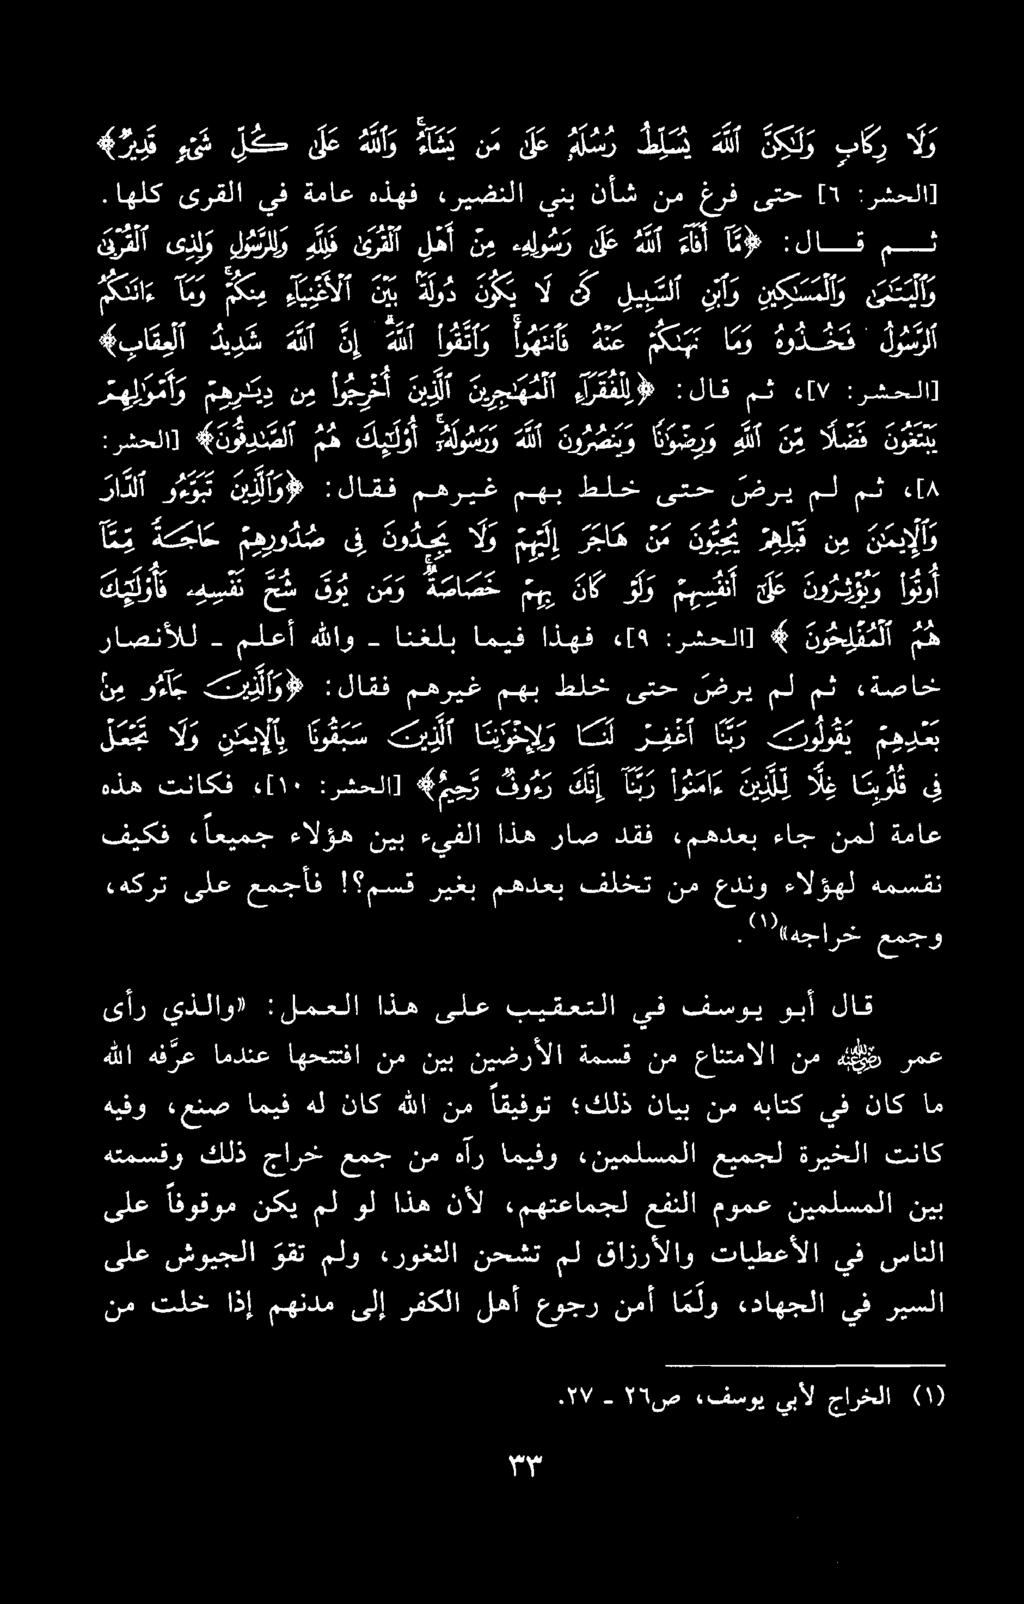 وَلَا رِكَابٍ وَلَٰكِنَّ ٱللَّهَ يُسَلِّطُ رُسُلَهُۥ عَلَىٰ مَن يَشَآءُۚ وَٱللَّهُ عَلَىٰ كُلِّ شَىْءٍ قَدِيرٌ﴾
[الحشر: ٦] حتى فرغ من شأن بني النضير، فهذه عامة في القرى كلها.
ثم قال: ﴿مَّآ أَفَآءَ ٱللَّهُ عَلَىٰ رَسُولِهِۦ مِنْ أَهْلِ ٱلْقُرَىٰ فَلِلَّهِ وَلِلرَّسُولِ وَلِذِى ٱلْقُرْبَىٰ
وَٱلْيَتَٰمَىٰ وَٱلْمَسَٰكِينِ وَٱبْنِ ٱلسَّبِيلِ كَىْ لَا يَكُونَ دُولَةًۢ بَيْنَ ٱلْأَغْنِيَآءِ مِنكُمْۚ وَمَآ ءَاتَىٰكُمُ
ٱلرَّسُولُ فَخُذُوهُ وَمَا نَهَىٰكُمْ عَنْهُ فَٱنتَهُوا۟ۚ وَٱتَّقُوا۟ ٱللَّهَۖ إِنَّ ٱللَّهَ شَدِيدُ ٱلْعِقَابِ﴾
[الحشر: ٧]، ثم قال: ﴿لِلْفُقَرَآءِ ٱلْمُهَٰجِرِينَ ٱلَّذِينَ أُخْرِجُوا۟ مِن دِيَٰرِهِمْ وَأَمْوَٰلِهِمْ
يَبْتَغُونَ فَضْلًا مِّنَ ٱللَّهِ وَرِضْوَٰنًا وَيَنصُرُونَ ٱللَّهَ وَرَسُولَهُۥٓۚ أُو۟لَٰٓئِكَ هُمُ ٱلصَّٰدِقُونَ﴾ [الحشر:
٨]، ثم لم يرضَ حتى خلط بهم غيرهم فقال: ﴿وَٱلَّذِينَ تَبَوَّءُو ٱلدَّارَ
وَٱلْإِيمَٰنَ مِن قَبْلِهِمْ يُحِبُّونَ مَنْ هَاجَرَ إِلَيْهِمْ وَلَا يَجِدُونَ فِى صُدُورِهِمْ حَاجَةً مِّمَّآ
أُوتُوا۟ وَيُؤْثِرُونَ عَلَىٰٓ أَنفُسِهِمْ وَلَوْ كَانَ بِهِمْ خَصَاصَةٌۚ وَمَن يُوقَ شُحَّ نَفْسِهِۦ فَأُو۟لَٰٓئِكَ
هُمُ ٱلْمُفْلِحُونَ﴾ [الحشر: ٩]، فهذا فيما بلغنا - والله أعلم - للأنصار
خاصة، ثم لم يرضَ حتى خلط بهم غيرهم فقال: ﴿وَٱلَّذِينَ جَآءُو مِنۢ
بَعْدِهِمْ يَقُولُونَ رَبَّنَا ٱغْفِرْ لَنَا وَلِإِخْوَٰنِنَا ٱلَّذِينَ سَبَقُونَا بِٱلْإِيمَٰنِ وَلَا تَجْعَلْ
فِى قُلُوبِنَا غِلًّا لِّلَّذِينَ ءَامَنُوا۟ رَبَّنَآ إِنَّكَ رَءُوفٌ رَّحِيمٌ﴾ [الحشر: ١٠]، فكانت هذه
عامة لمن جاء بعدهم، فقد صار هذا الفيء بين هؤلاء جميعاً، فكيف
نقسمه لهؤلاء وندع من تخلف بعدهم بغير قسم؟! فأجمع على تركه،
وجمع خراجه»(١).
قال أبو يوسف في التعقيب على هذا العمل: «والذي رأى
عمر رضي الله عنه من الامتناع من قسمة الأرضين بين من افتتحها عندما عرَّفه الله
ما كان في كتابه من بيان ذلك؛ توفيقاً من الله كان له فيما صنع، وفيه
كانت الخيرة لجميع المسلمين، وفيما رآه من جمع خراج ذلك وقسمته
بين المسلمين عموم النفع لجماعتهم، لأن هذا لو لم يكن موقوفاً على
الناس في الأعطيات والأرزاق لم تشحن الثغور، ولم تقوَ الجيوش على
السير في الجهاد، ولَمَا أمن رجوع أهل الكفر إلى مدنهم إذا خلت من
(١) الخراج لأبي يوسف، ص٢٦ - ٢٧.
٣٣